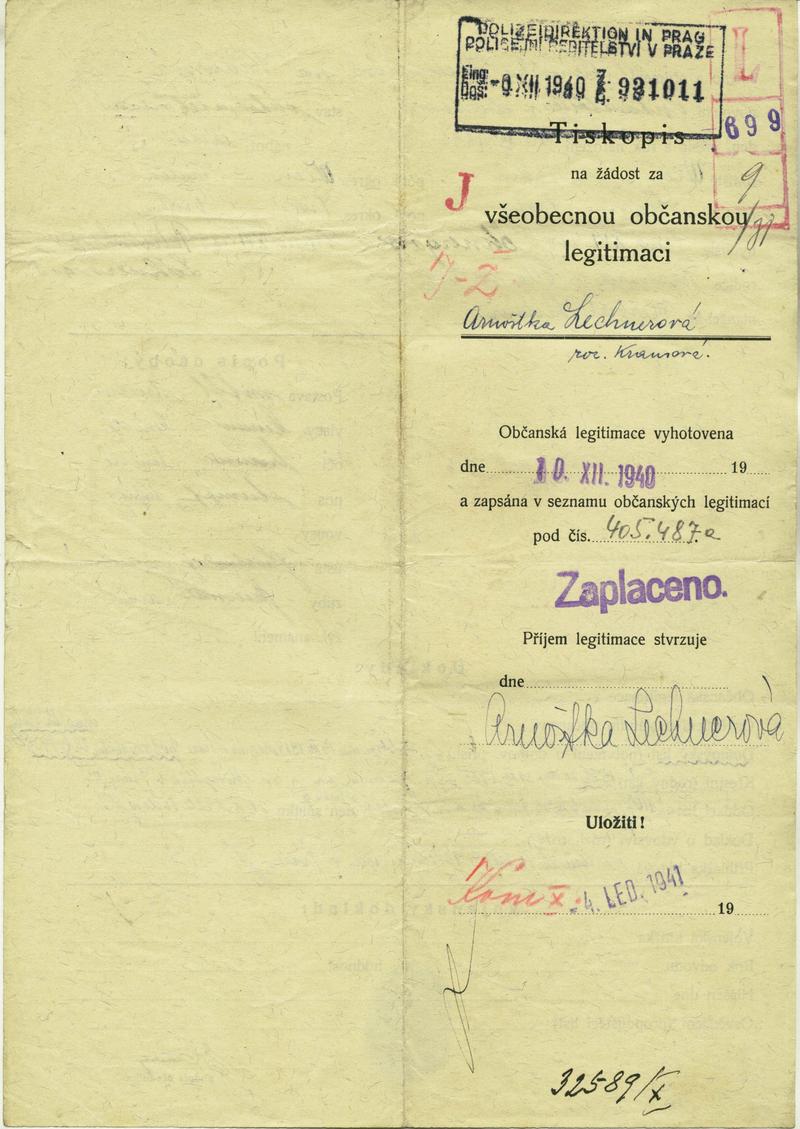 POLIZEIDIREKTION IN PRAG
POLICEJNÍ ŘEDITELSTVÍ V PRAZE
Eing. XII 1940 Z. 931011
Dos. Č.
L
699
9
Tiskopis
na žádost za
J
všeobecnou občanskou
legitimaci
J-Ž
Arnoštka Lechnerová
roz. Krausová.
Občanská legitimace vyhotovena
dne 10. XII. 1940 19
a zapsána v seznamu občanských legitimací
pod čís. 405.487a
Zaplaceno.
Příjem legitimace stvrzuje
dne
Arnoštka Lechnerová
Uložiti!
Kom X. - 4. LED. 1941 19
32589/X
Popis osoby